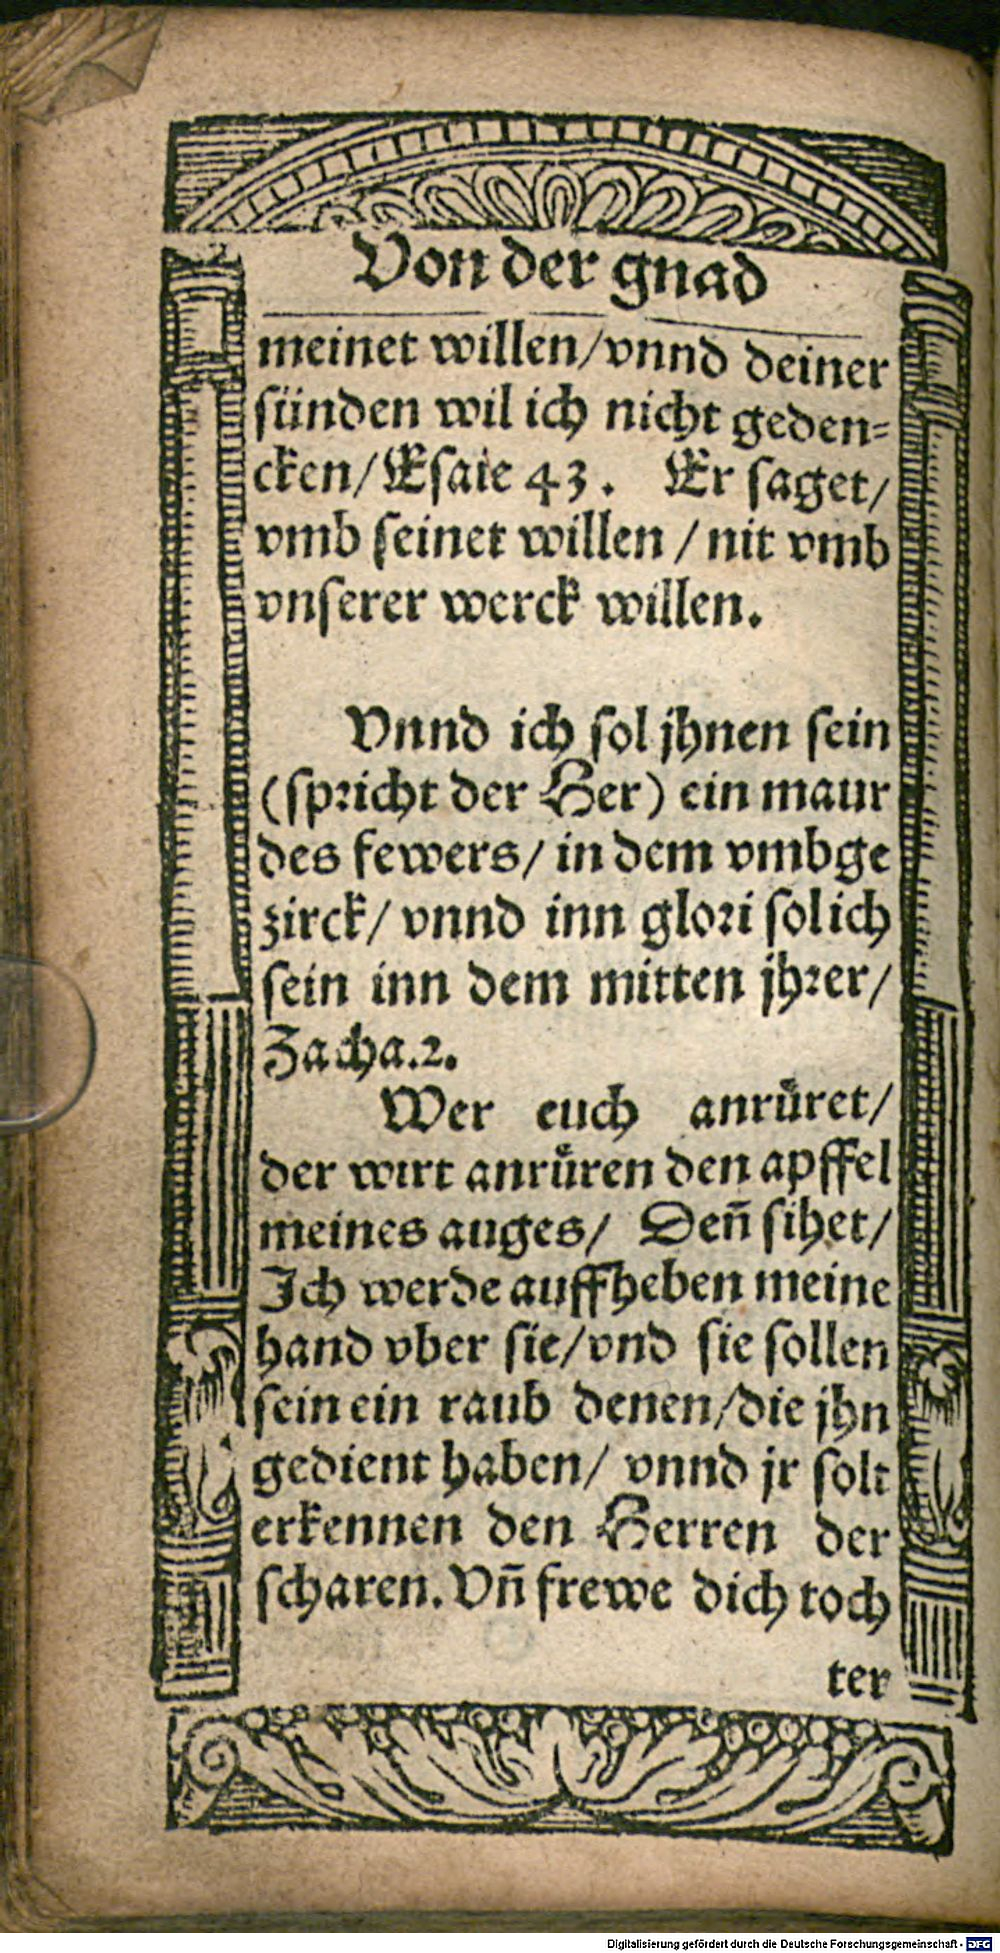 Von der gnad
meinet willen/vnnd deiner
sünden wil ich nicht geden⸗
cken/Esaie 43. Er saget/
vmb seinet willen / nit vmb
vnserer werck willen.
Vnnd ich sol jhnen sein
(spricht der Her) ein maur
des fewers/ in dem vmbge
zirck/ vnnd inn glori sol ich
sein inn dem mitten jhrer/
Zacha.2.
Wer euch anrůret/
der wirt anrůren den apffel
meines auges/ Deñ sihet/
Ich werde auffheben meine
hand vber sie/vnd sie sollen
sein ein raub denen/die jhn
gedient haben/ vnnd jr solt
erkennen den Herren der
scharen. Vñ frewe dich toch
ter
Digitalisierung gefördert durch die Deutsche Forschungsgemeinschaft - DFG